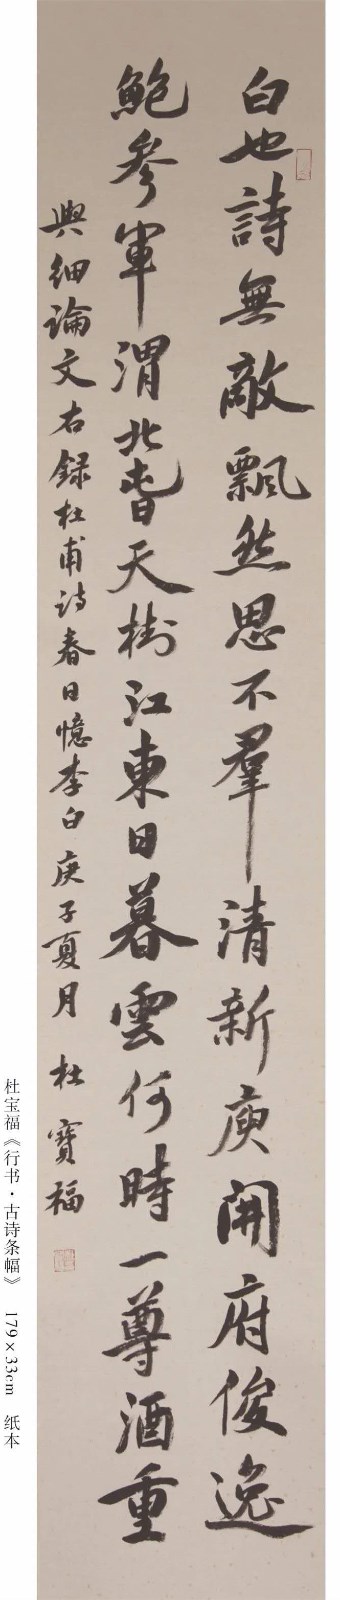 白也詩無敵飄然思不羣清新庾開府俊逸
鮑參軍渭北春天樹江東日暮雲何時一尊酒重
與細論文右録杜甫詩春日憶李白庚子夏月杜寶福
杜宝福《行书·古诗条幅》 179×33cm 纸本